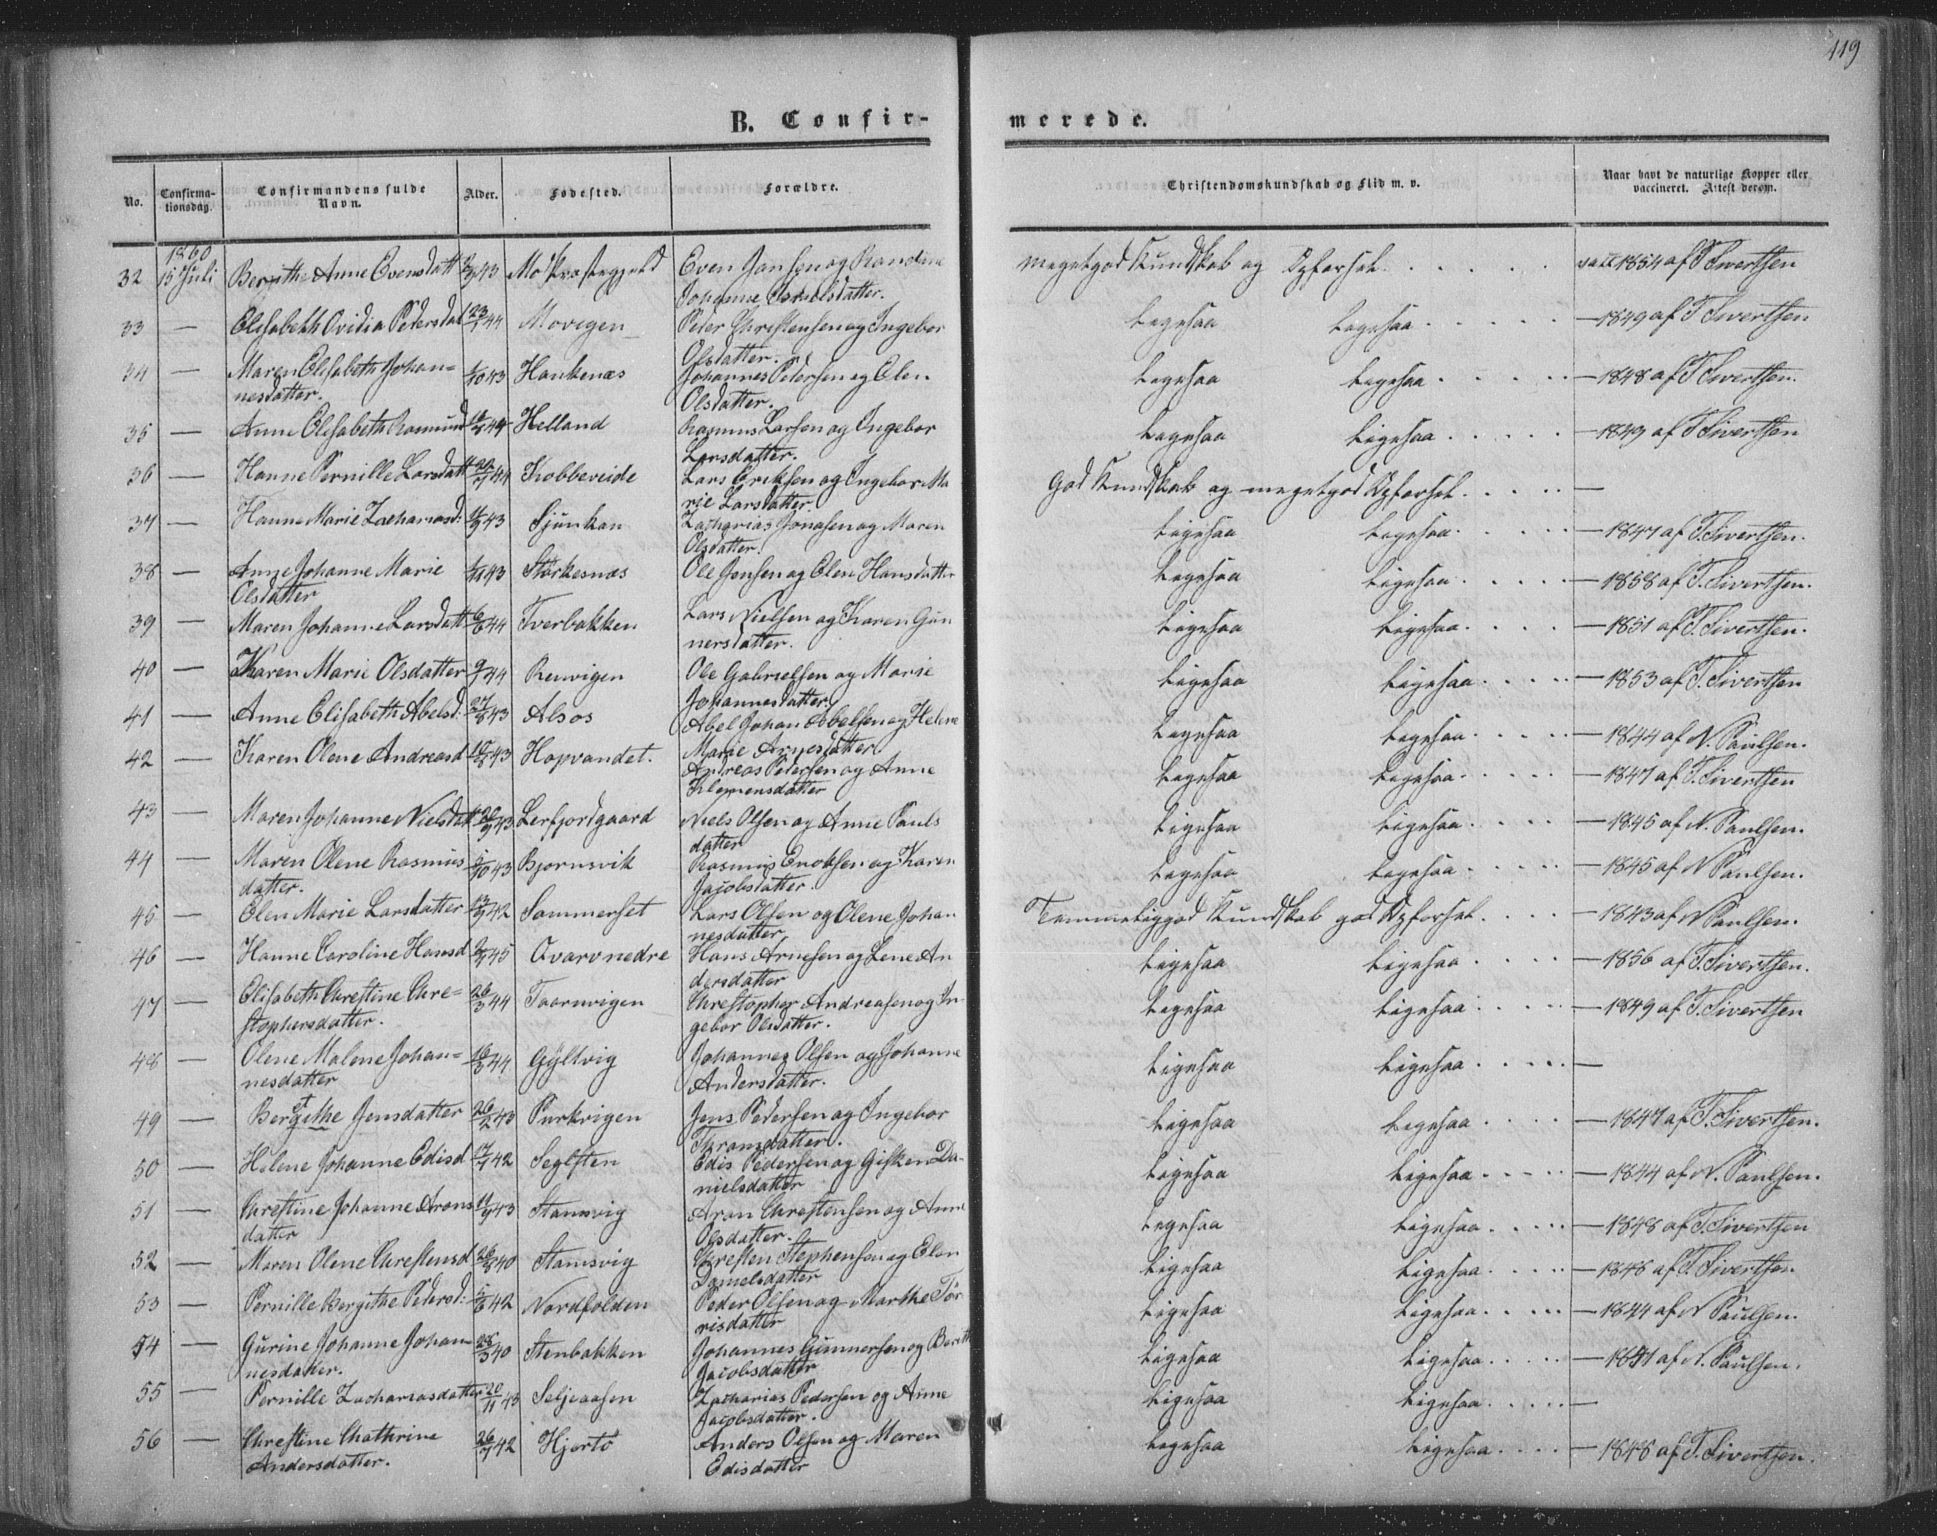 119
B. Confir-merede.
No. Confirma-tionsdag. Confirmandens fulde Navn. Alder. Fødested. Forældre. Christendomskundskab og Flid m. v. Naar havt de naturlige Kopper eller vaccineret. Attest derom.
1860
32 15 Juli Berithe Anne Evensdatt 43 Mo Præstegjeld Even Jonsen og Randine Johanne Israelsdatter. meget god Kundskab og Opførsel. vacc 1854 af T. Sivertsen
33 — Elisabeth Ovidia Pedersdat 23/1 44 Movigen Peder Christensen og Ingebor Olsdatter. Ligesaa Ligesaa — 1849 af T. Sivertsen
34 — Maren Elisabeth Johan=nesdatter. /10 43 Hankenæs Johannes Pedersen og Elen Olsdatter. Ligesaa Ligesaa — 1848 af T. Sivertsen.
35 — Anne Elisabeth Rasmusd 44 Helland Rasmus Larsen og Ingebor Larsdatter. Ligesaa Ligesaa — 1849 af T. Sivertsen
36 — Hanne Pernille Larsdatt 44 Kobbevide Lars Eriksen og Ingebor Ma rie Larsdatter. God Kundskab og meget god Opførsel. —
37 — Hanne Marie Zachariasd: 43 Sjunkan Zacharias Jonasen og Maren Olsdatter. Ligesaa Ligesaa — 1847 af T. Sivertsen.
38 — Anne Johanne Marie Olsdatter /11 43 Størkesnæs Ole Jensen og Elen Hansdatter Ligesaa Ligesaa — 1858 af T. Sivertsen.
39 — Maren Johanne Larsdatt 44 Tverbakken Lars Nielsen og Karen Gun nersdatter. Ligesaa Ligesaa — 1851 af T. Sivertsen.
40 — Karen Marie Olsdatter 9/ 44 Renvigen Ole Gabrielsen og Marie Johannesdatter. Ligesaa Ligesaa — 1853 af T. Sivertsen
41 — Anne Elisabeth Abelsd: 27/8 43 Alsos Abel Johan Abelsen og Helene Marie Arnesdatter Ligesaa Ligesaa — 1844 af N. Paulsen.
42 — Karen Olene Andreasd 43 Hopvandet. Andreas Pedersen og Anne Klemensdatter Ligesaa Ligesaa — 1847 af T. Sivertsen
43 — Maren Johanne Nielsdatt 43 Lerfjordgaard Niels Olsen og Anne Pauls datter Ligesaa Ligesaa — 1845 af N. Paulsen.
44 — Maren Olene Rasmus datter. /10 43 Bjørnsvik Rasmus Enoksen og Karen Jacobsdatter. Ligesaa Ligesaa — 1845 af N Paulsen.
45 — Elen Marie Larsdatter 42 Sommerset Lars Olsen og Olene Johan nesdatter Temmelig god Kundskab god Opførsel. — 1843 af N Paulsen.
46 — Hanne Caroline Hansd 45 Qvarvnedre Hans Arnesen og Lene An dersdatter Ligesaa Ligesaa — 1856 af T. Sivertsen.
47 — Elisabeth Christine Chri=stophersdatter. 26/3 44 Taarnvigen Christopher Andreasen og In gebor Olsdatter. Ligesaa Ligesaa — 1849 af T. Sivertsen
48 — Olene Malene Johan=nesdatter 44 Gyltvig Johannes Olsen og Johanne Andersdatter. Ligesaa Ligesaa —
49 — Bergithe Jensdatter 26/2 43 Purkvigen Jens Pedersen og Ingebor Transdatter. Ligesaa Ligesaa — 1847 af T. Sivertsen.
50 — Helene Johanne Edisd 42 Seglsten Edis Pedersen og Gisken Da-nielsdatter Ligesaa Ligesaa — 1844 af N. Paulsen.
51 — Christine Johanne Arons datter 43 Stamsvig Aron Christensen og Anne Olsdatter. Ligesaa Ligesaa — 1848 af T. Sivertsen
52 — Maren Olene Christensd 40 Stamsvig Christen Stephensen og Elen Danielsdatter Ligesaa Ligesaa — 1848 af T. Sivertsen
53 — Pernille Bergithe Pedersd: 42 Nordfolden Peder Olsen og Marthe Tør risdatter Ligesaa Ligesaa — 1844 af N Paulsen.
54 — Gurine Johanne Johan nesdatter. 40 Stenbakken Johannes Gunnersen og Berith Jacobsdatter Ligesaa Ligesaa — 1841 af N. Paulsen.
55 — Pernille Zachariasdatter 20/11 43 Seljeaasen Zacharias Pedersen og Anne Jacobsdatter. Ligesaa Ligesaa —
56 — Christine Chathrine Andersdatter. 42 Hjertø Anders Olsen og Maren Edisdatter Ligesaa Ligesaa — 1848 af T. Sivertsen.